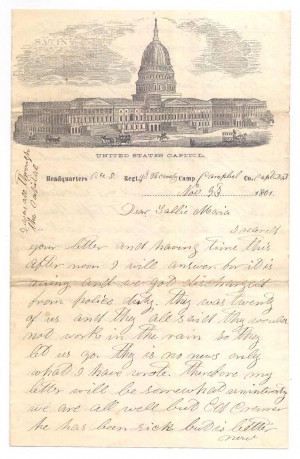 UNITED STATES CAPITOL.
I was all through
the Capitol
Headquarters Co. D. Regt. Camp Campbel Co.
Nov 23 1861.
Dear Sallie Maria
I received
your letter and having time this
after noon I will answer for it is
raining and we got discharged
from police duty. They was twenty
of us and they all said they would
not work in the rain so they
let us go. They is no news only
what I have wrote. Therefore my
letter will be somewhat
we are all well but Ed Cremer
he has been sick but is better
now